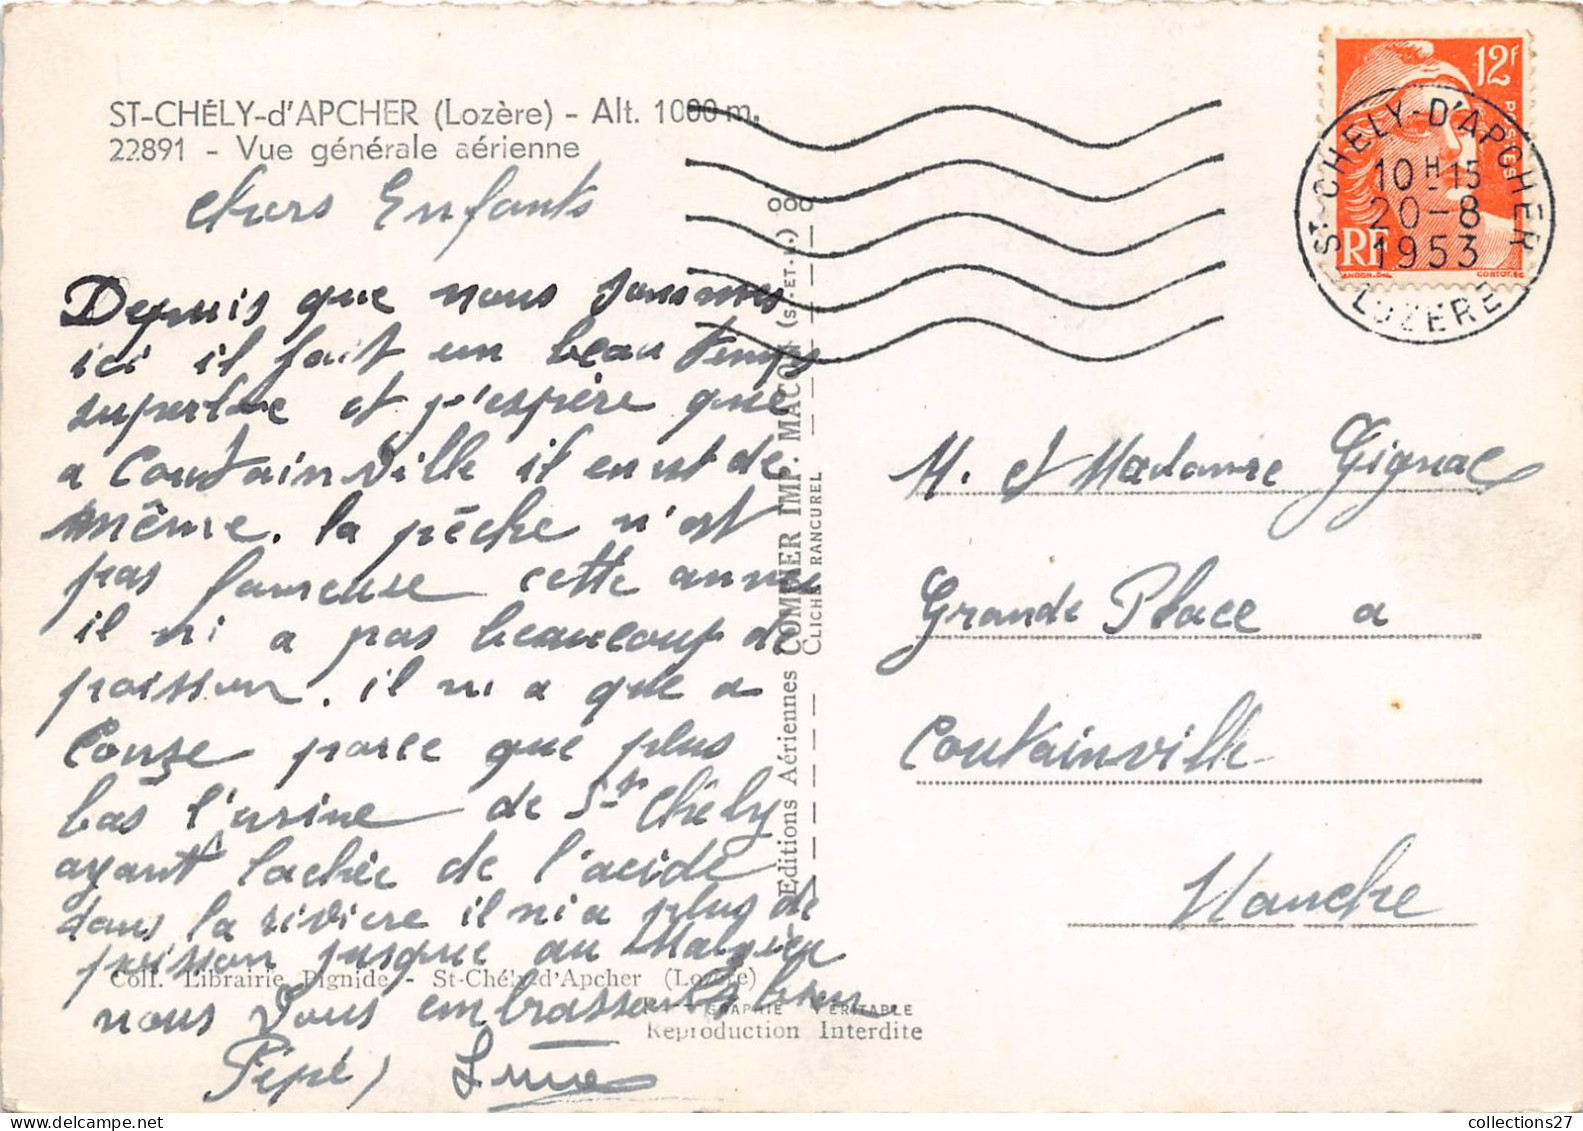 ST-CHÉLY-d'APCHER (Lozère) - Alt. 1000 m.
22891 - Vue générale aérienne
chers Enfants
Depuis que nous sommes
ici il fait un beau temps
superbe et j'espère que
a Coutainville il en est de
même. la pêche n'est
pas fameuse cette année
il ni a pas beaucoup de
poisson. il ni a que a
parce que plus
bas l'usine de St Chély
ayant lachée de l'acide
dans la rivière il ni a plus de
poisson jusque au Malzieu
nous vous embrassons bien
Pépé
Coll. Librairie Pignide - St-Chély-d'Apcher (Lozère)
VÉRITABLE
Reproduction Interdite
Editions Aériennes COMBIER IMP. MACON (S.-ET-L.)
CLICHÉ RANCUREL
12f
POSTES
RF
GANDON.Del
CORTOT.SC
ST-CHÉLY-D'APCHER
10H-15
20-8
1953
LOZÈRE
M. et Madame Gignac
Grande Place a
Coutainville
Manche
collections27